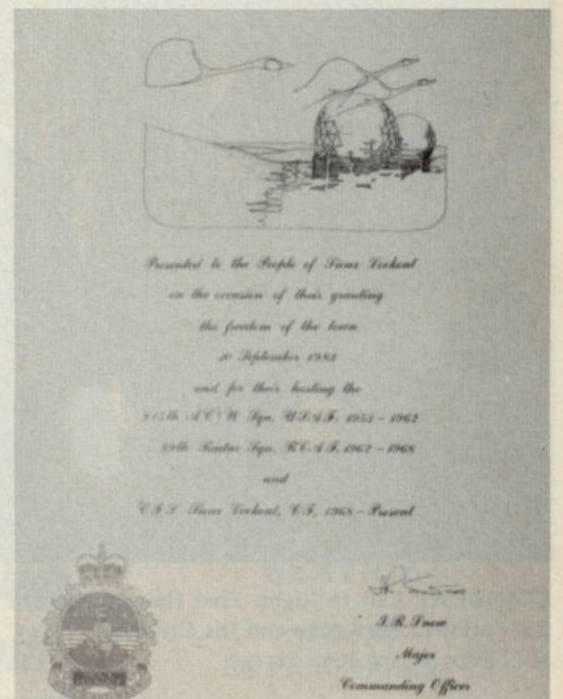 Presented to the People of Sioux Lookout
on the occasion of their granting
the freedom of the town
10 September 1983
and for their hosting the
915th AC&W Sqn, USAF, 1953 - 1962
39th Radar Sqn, RCAF, 1962 - 1968
and
CFS Sioux Lookout, CF, 1968 - Present
Snow
Major
Commanding Officer